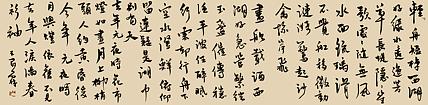 轻舟短棹西湖
好绿水逶迤芳
草长堤隐隐笙
歌处处随无风
水面琉璃滑
不觉船移微动
涟漪惊起沙
禽掠岸飞
画船载酒西
湖好急管繁弦
玉盏催传稳泛
平波任醉眠
行云却在行舟
下空水澄鲜俯仰
留连疑是湖中
别有天
去年元夜时花市
灯如昼月上柳梢
头人约黄昏后
今年元夜时
月与灯依旧不见
去年人泪满春
衫袖